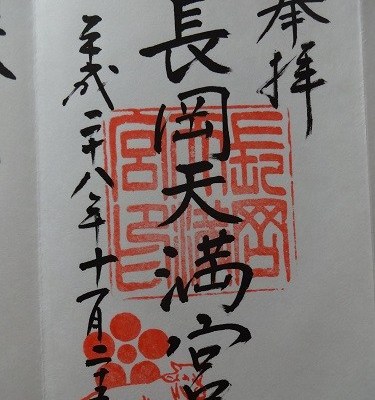 奉拝
長岡天満宮
平成二十八年十月二十
長岡
天満
宮印